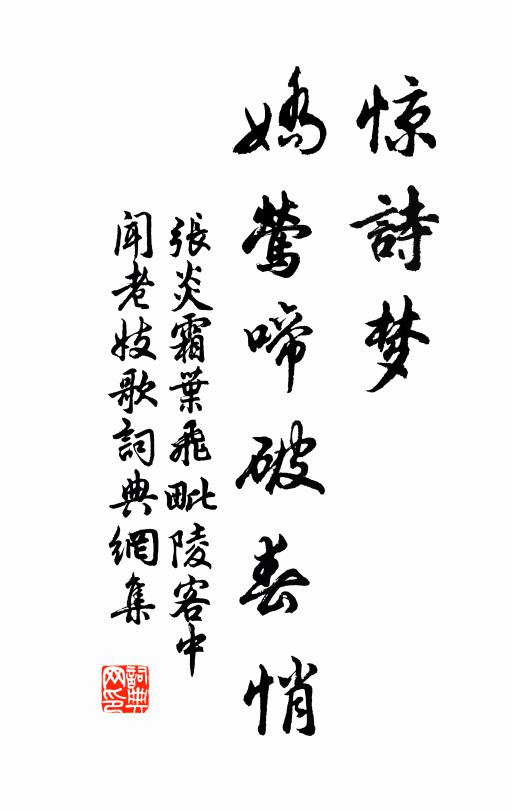 惊詩梦
嬌鶯啼破春悄
張炎霜葉飛毗陵客中
聞老妓歌詞典網集
詞典
网印